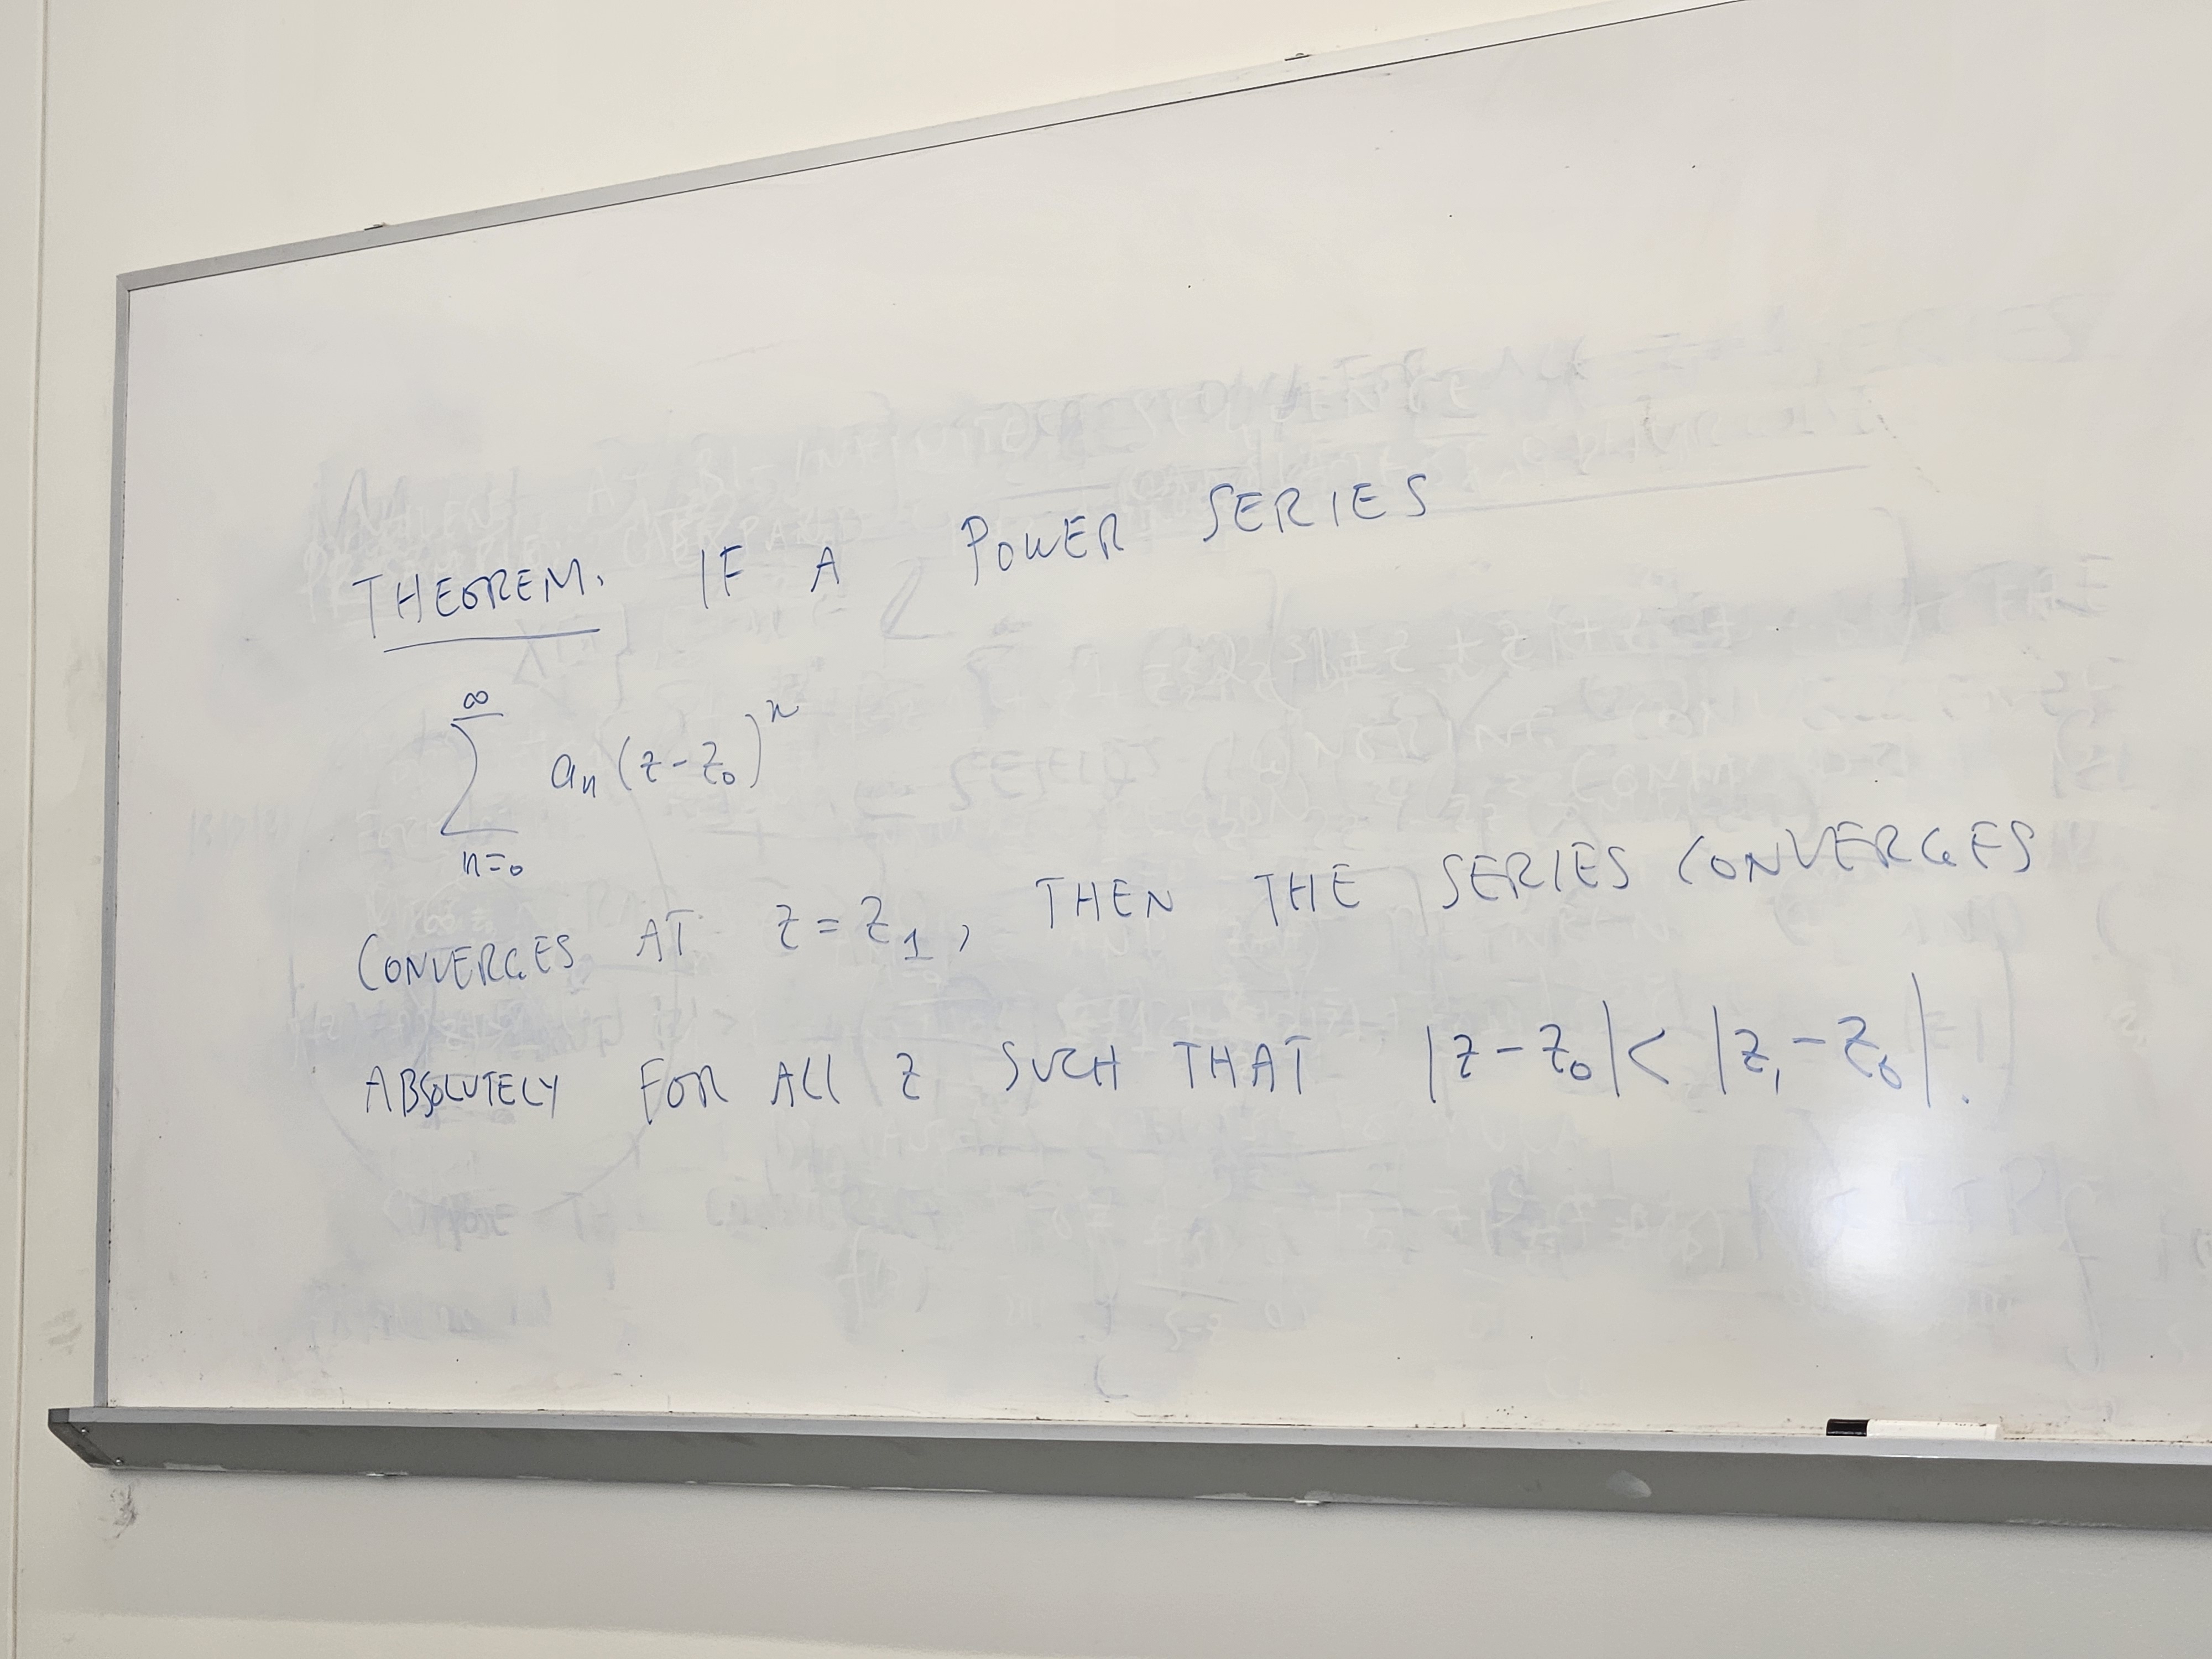 THEOREM. IF A POWER SERIES
∑_{n=0}^{∞} a_n (z-z_0)^n
CONVERGES AT z=z_1, THEN THE SERIES CONVERGES
ABSOLUTELY FOR ALL z SUCH THAT |z-z_0|<|z_1-z_0|.